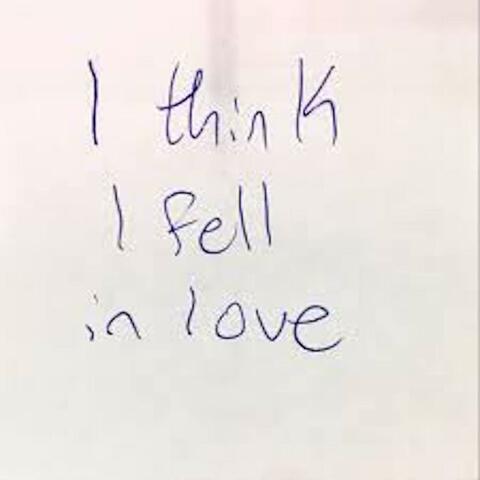 I think
I fell
in love